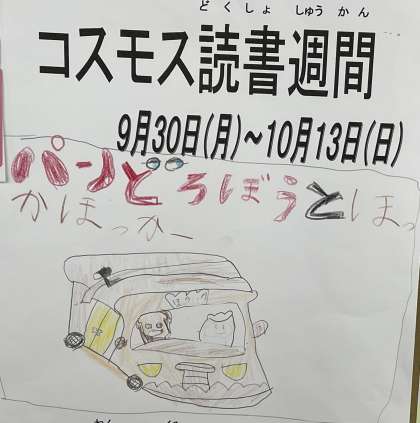 どくしょ しゅうかん
コスモス読書週間
9月30日(月)~10月13日(日)
パンどろぼうとほっ
かほっかー